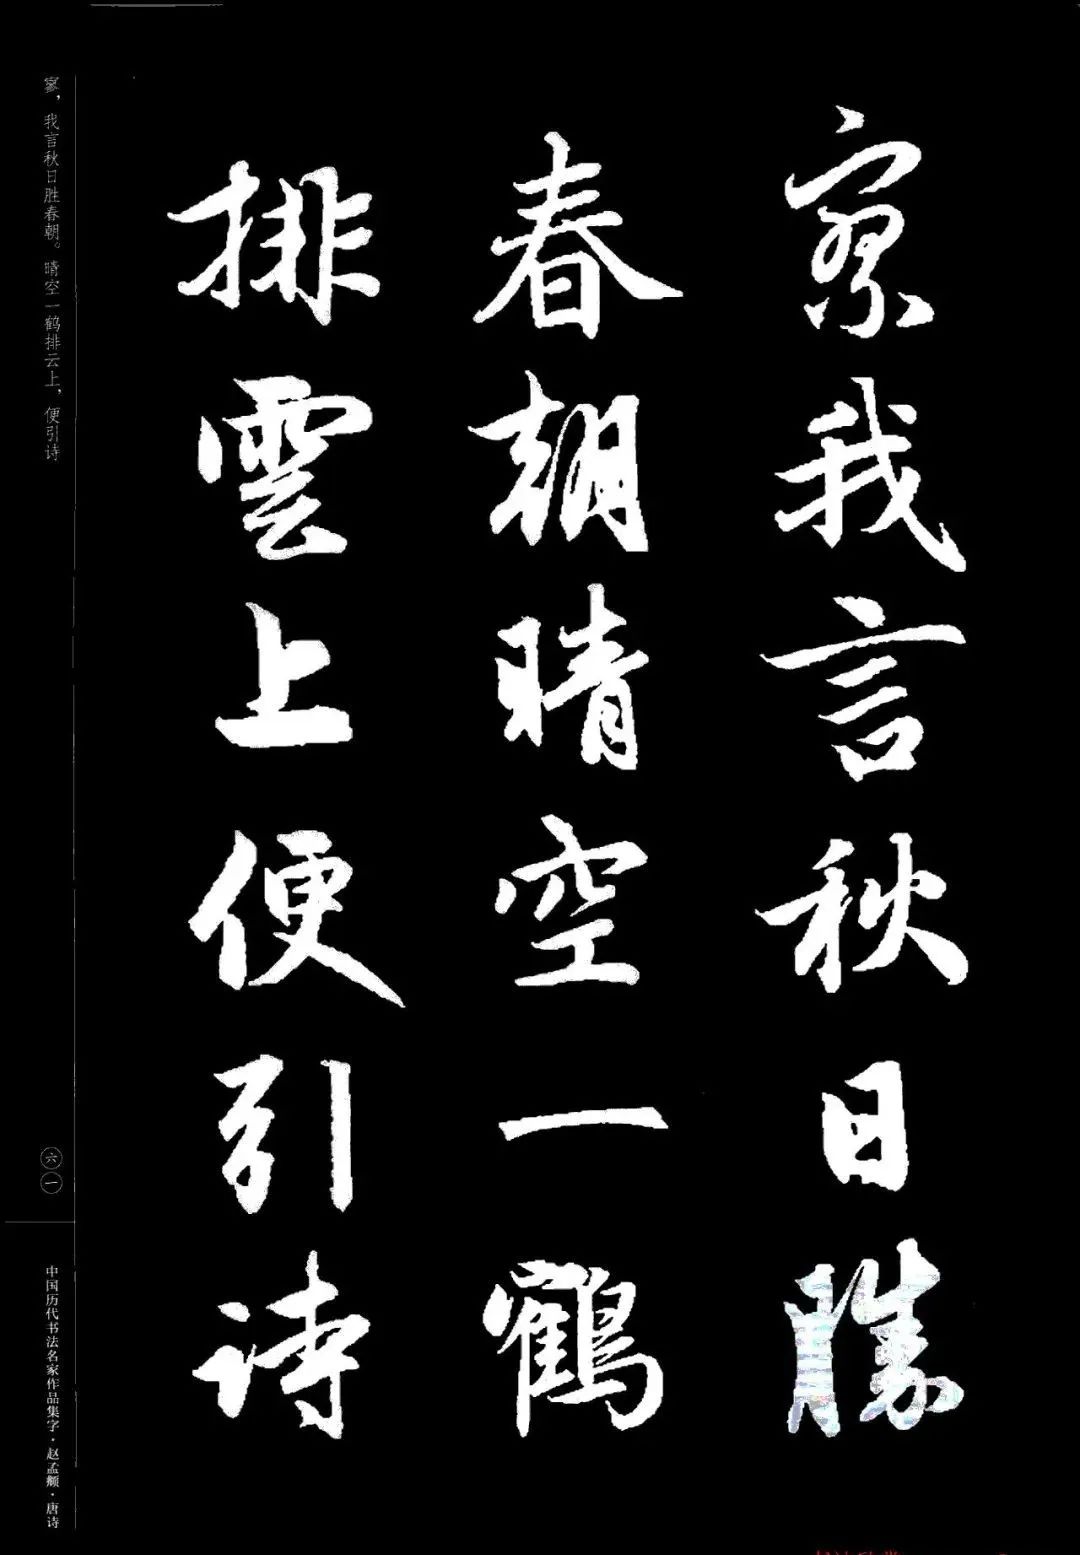 寥我言秋日勝
春朝晴空一鶴
排雲上便引诗
寥，我言秋日胜春朝。晴空一鹤排云上，便引诗
六一
中国历代书法名家作品集字·赵孟頫·唐诗